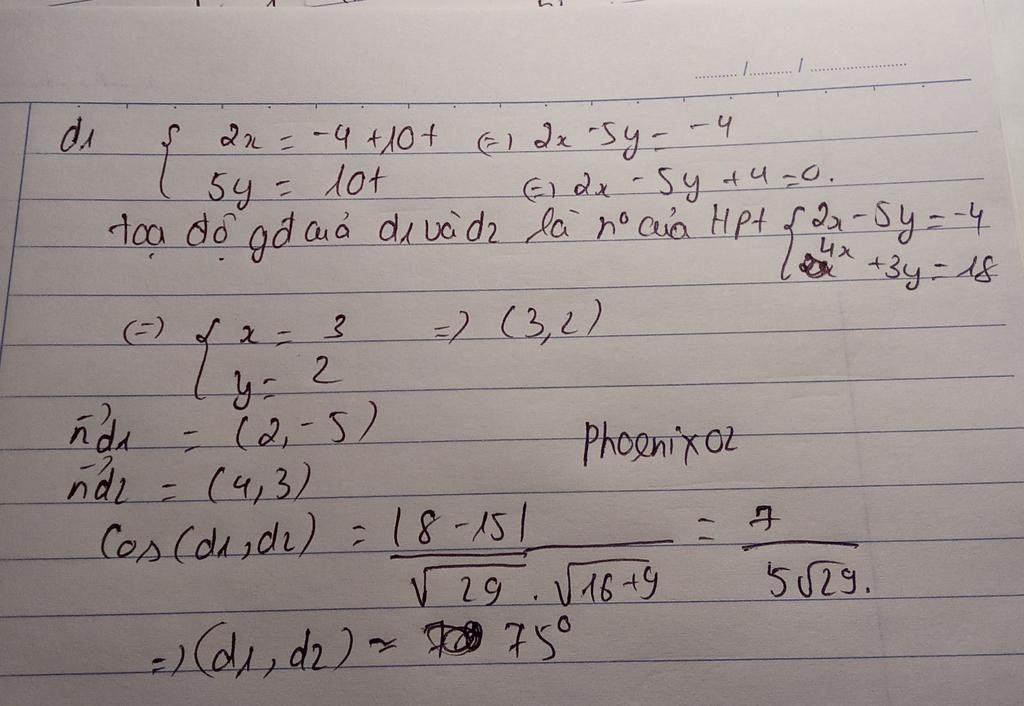 d1 { 2x = -4 +10t (=) 2x -5y = -4
5y = 10t (=) 2x - 5y +4 =0.
toạ độ gđ củả d1 và d2 là n° của Hpt { 2x - 5y = -4
4x +3y = 18
(=) { x = 3 => (3,2)
y = 2
n⃗d1 = (2,-5)
Phoenix02
n⃗d2 = (4,3)
Cos(d1,d2) = |8 -15| / √29 . √16+9 = 7 / 5√29.
=> (d1, d2) ≈ 75°